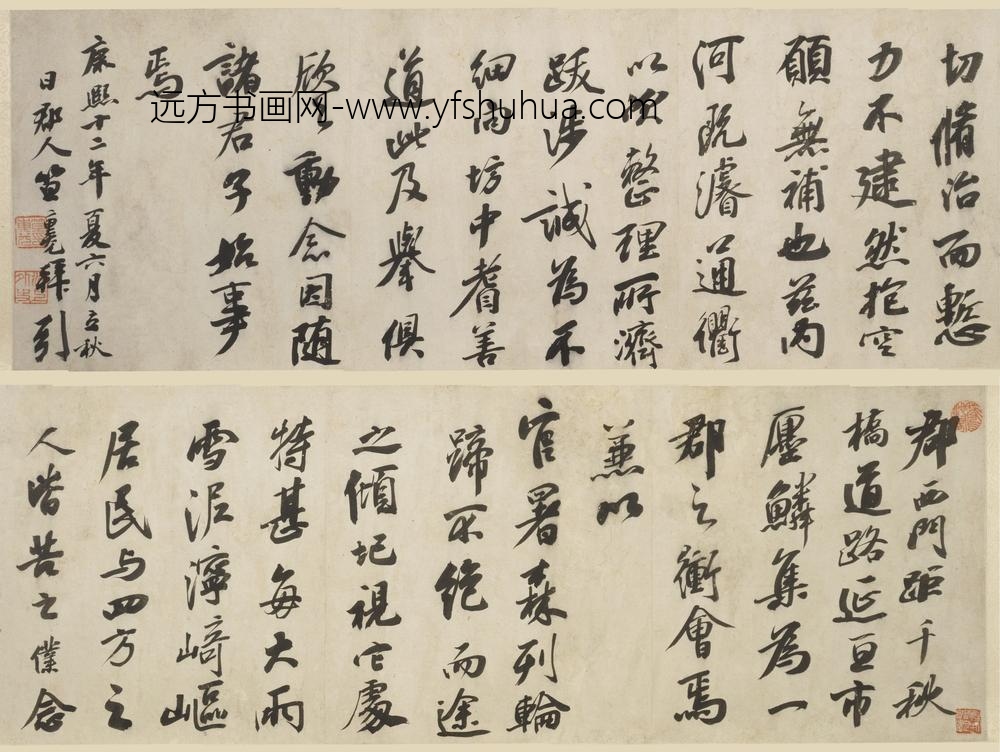 郡西門距千秋
橋道路延亘市
廛鱗集為一
郡之衝會焉
兼以
官署森列輪
蹄不絕而途
之傾圮視它處
特甚每大雨
雪泥濘崎嶇
居民与四方之
人皆苦之僕念
切脩治而慙
力不逮然抱空
願無補也茲內
河既濬通衢
以次整理所濟
跋涉誠為不
細尚坊中耆善
道此及舉俱
欣欣動念因随
諸君子始事
焉
康熙十二年夏六月立秋
日郡人笪重光拜引
远方书画网-www.yfshuhua.com